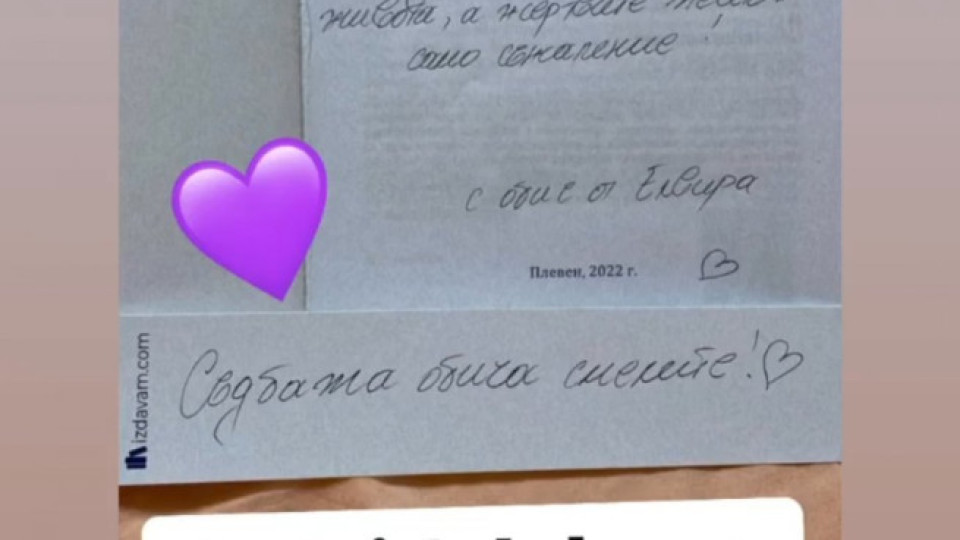 живота, а жертвите
само съжаление!
с обич от Елвира
Плевен, 2022 г.
izdavam.com
Съдбата обича смелите!